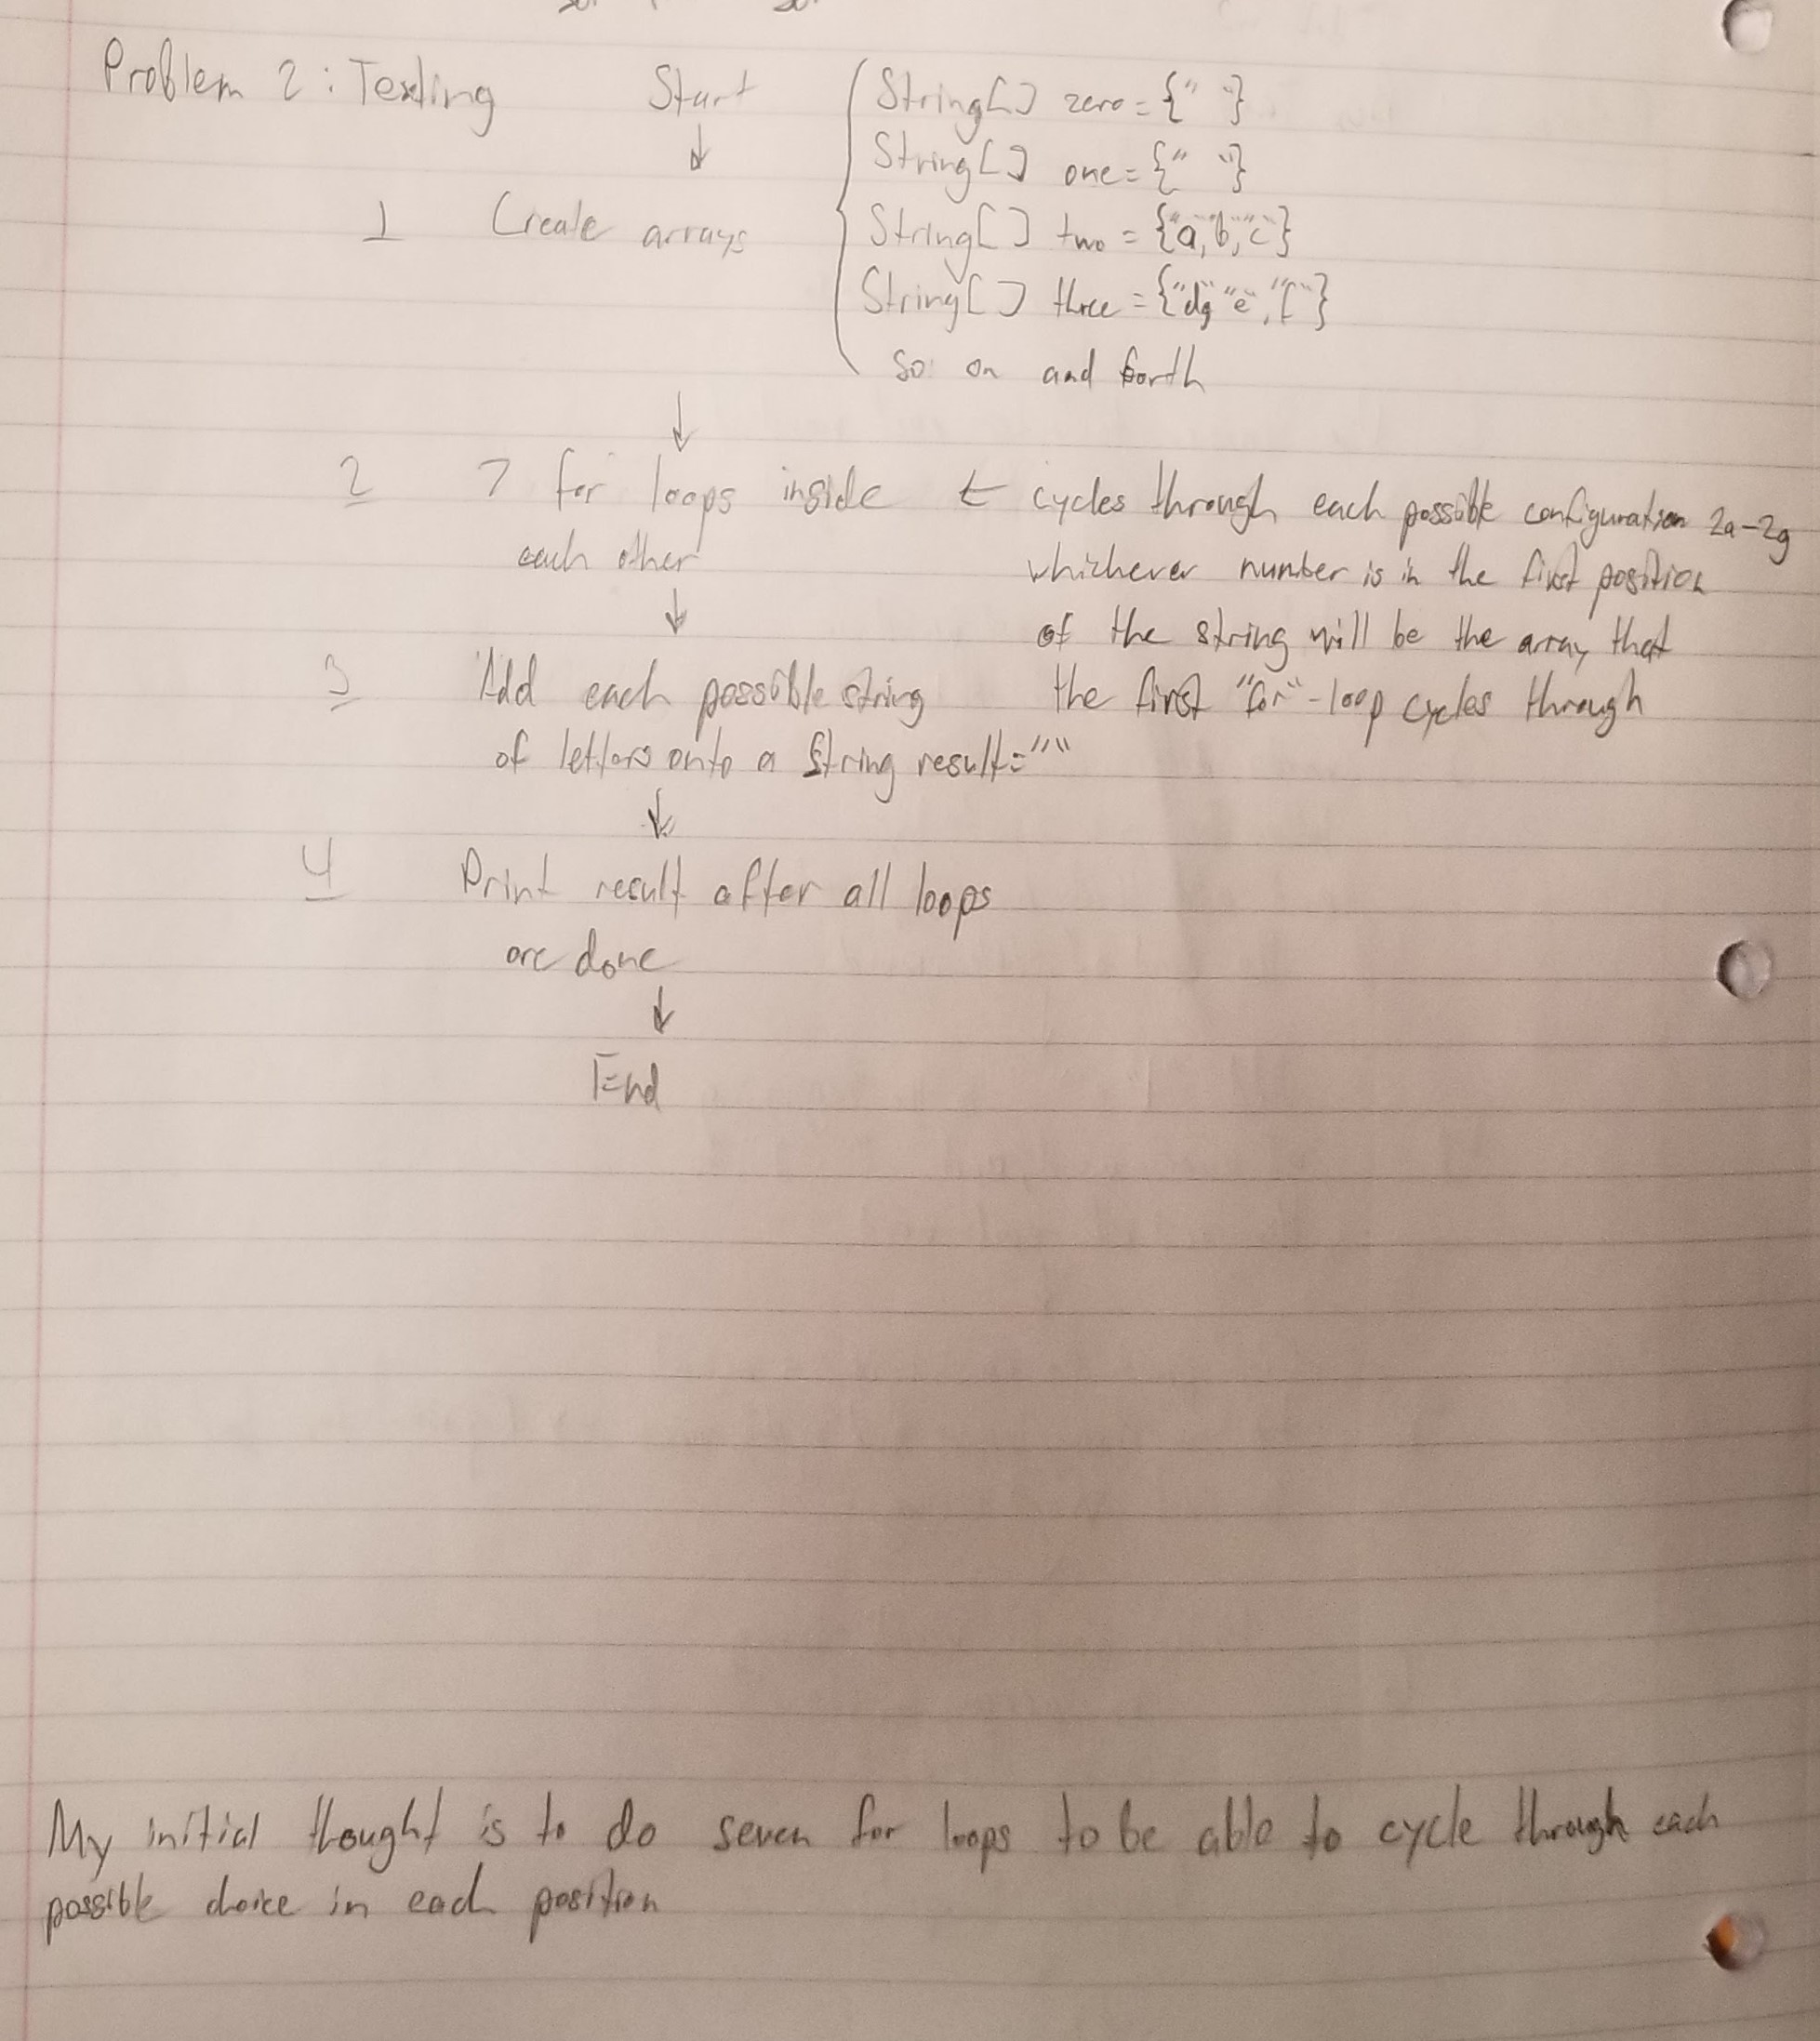 Problem 2: Texting
Start
↓
1 Create arrays
String[] zero = {" "}
String[] one = {" "}
String[] two = {"a","b","c"}
String[] three = {"d", "e", "f"}
so on and forth
↓
2 7 for loops inside
each other
← cycles through each possible configuration 2a-2g
whichever number is in the first position
of the string will be the array that
the first "for"-loop cycles through
↓
3 Add each possible string
of letters onto a String result=""
↓
4 Print result after all loops
are done
↓
End
My initial thought is to do seven for loops to be able to cycle through each
possible choice in each position